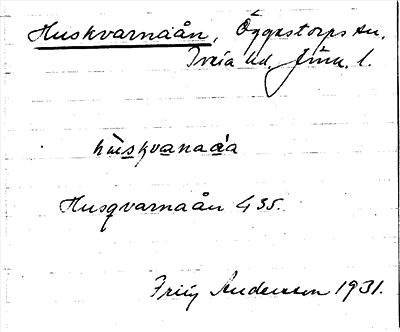 Huskvarnaån, Öggestorps sn.
Tveta hd. Jönk. l.
huskvanaåa
Husqvarnaån 435.
Anderson 1931.